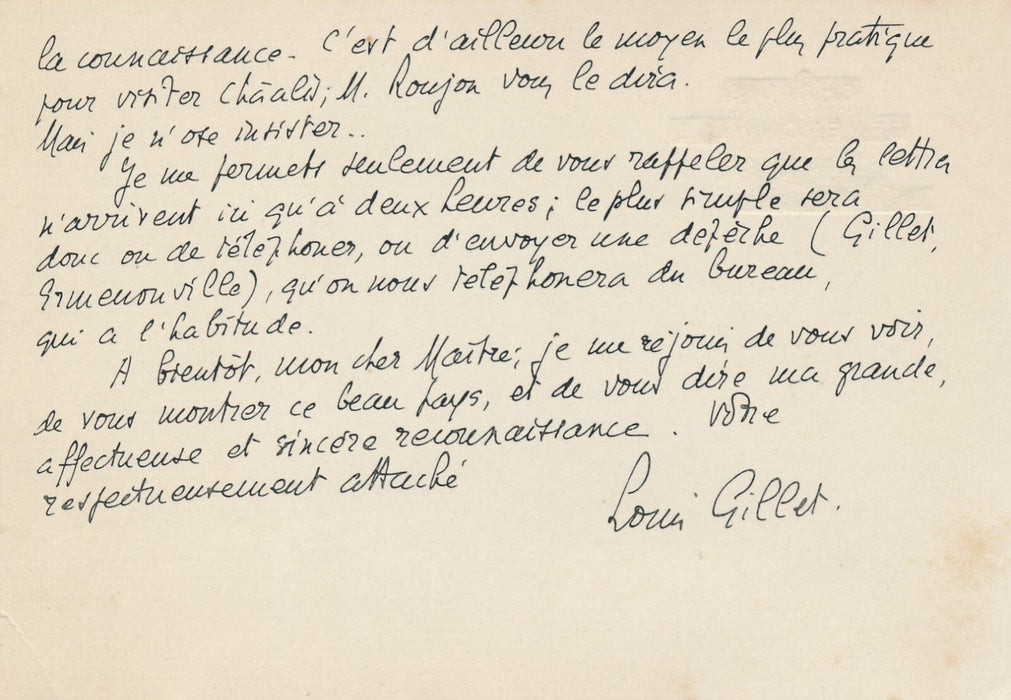 la connaissance. C'est d'ailleurs le moyen le plus pratique
pour visiter Châalis; M. Roujon vous le dira.
Mais je n'ose insister..
Je me permets seulement de vous rappeler que les lettres
n'arrivent ici qu'à deux heures; le plus simple sera
donc ou de téléphoner, ou d'envoyer une dépêche (Gillet,
Ermenonville), qu'on nous téléphonera du bureau,
qui a l'habitude.
A bientôt, mon cher Maître; je me réjouis de vous voir,
de vous montrer ce beau pays, et de vous dire ma grande,
affectueuse et sincère reconnaissance. Votre
respectueusement attaché
Louis Gillet.